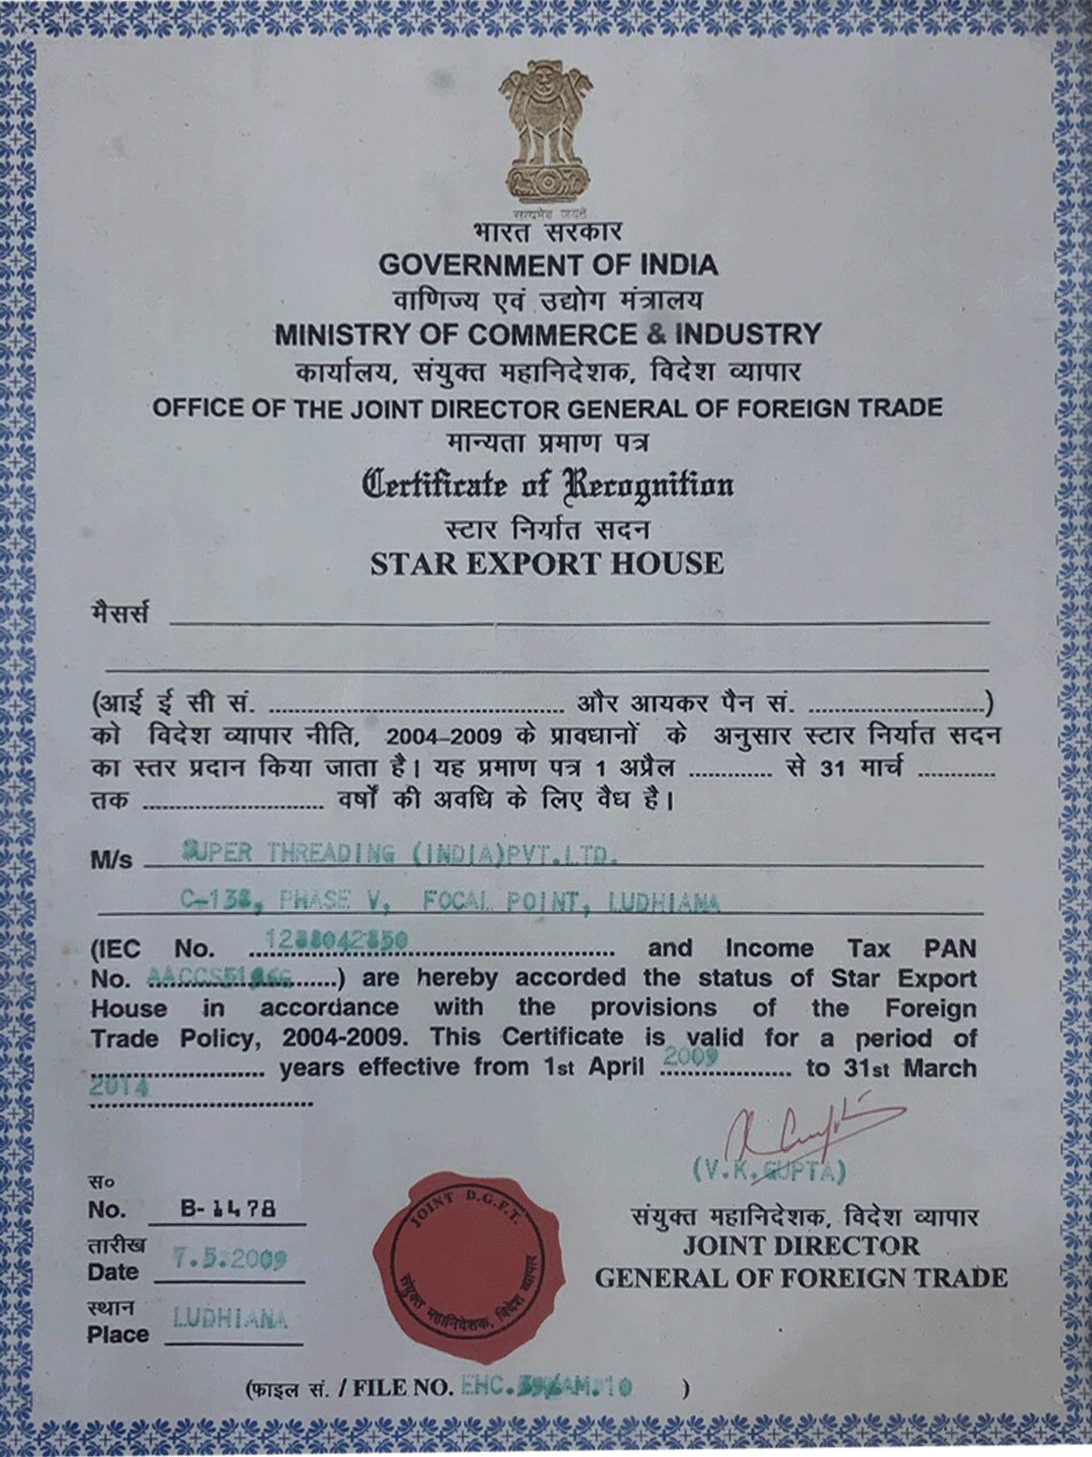 सत्यमेव जयते
भारत सरकार
GOVERNMENT OF INDIA
वाणिज्य एवं उद्योग मंत्रालय
MINISTRY OF COMMERCE & INDUSTRY
कार्यालय, संयुक्त महानिदेशक, विदेश व्यापार
OFFICE OF THE JOINT DIRECTOR GENERAL OF FOREIGN TRADE
मान्यता प्रमाण पत्र
Certificate of Recognition
स्टार निर्यात सदन
STAR EXPORT HOUSE
मैसर्स
(आई ई सी सं. ........................ और आयकर पैन सं. ........................)
को विदेश व्यापार नीति, 2004–2009 के प्रावधानों के अनुसार स्टार निर्यात सदन
का स्तर प्रदान किया जाता है। यह प्रमाण पत्र 1 अप्रैल ............ से 31 मार्च ............
तक ........................ वर्षों की अवधि के लिए वैध है।
M/s SUPER THREADING (INDIA)PVT.LTD.
C-138, PHASE V, FOCAL POINT, LUDHIANA
(IEC No. 1288042850 and Income Tax PAN
No. ........................) are hereby accorded the status of Star Export
House in accordance with the provisions of the Foreign
Trade Policy, 2004-2009. This Certificate is valid for a period of
........................ years effective from 1st April 2009 to 31st March
2014
(V.K.GUPTA)
संयुक्त महानिदेशक, विदेश व्यापार
JOINT DIRECTOR
GENERAL OF FOREIGN TRADE
स०
No. B-1478
तारीख
Date 7.5.2009
स्थान
Place LUDHIANA
JOINT D.G.F.T.
संयुक्त महानिदेशक, विदेश व्यापार
(फाइल सं. / FILE NO. EHC. AM.10 )